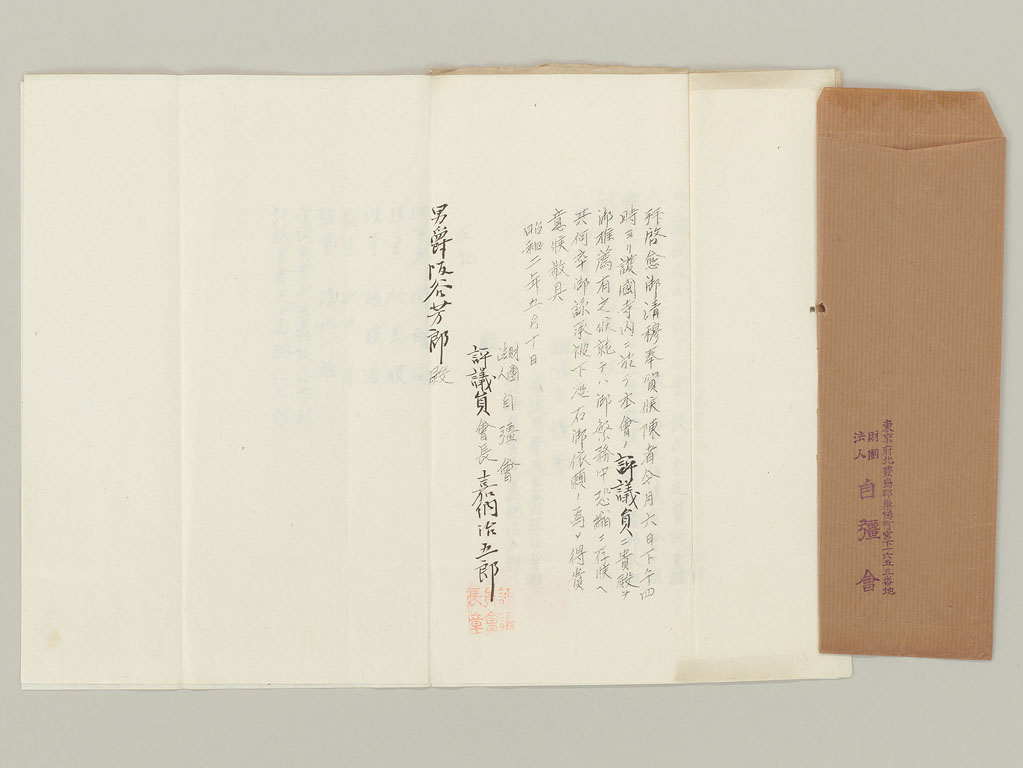 拝啓愈御清穆奉賀候陳者今月六日下午四
時ヨリ護國寺内ニ於テ本會ノ評議員ニ貴殿ヲ
御推薦有之候就テハ御繁務中恐縮ニ存候ヘ
共何卒御諒承被下度右御依願ノ為メ得貴
意候敬具
昭和二年五月十日
財團法人 自彊會
評議員會長 嘉納治五郎
男爵阪谷芳郎殿
評議員會長章
東京府北豊島郡巣鴨町宮下一六五三番地
財團法人 自彊會